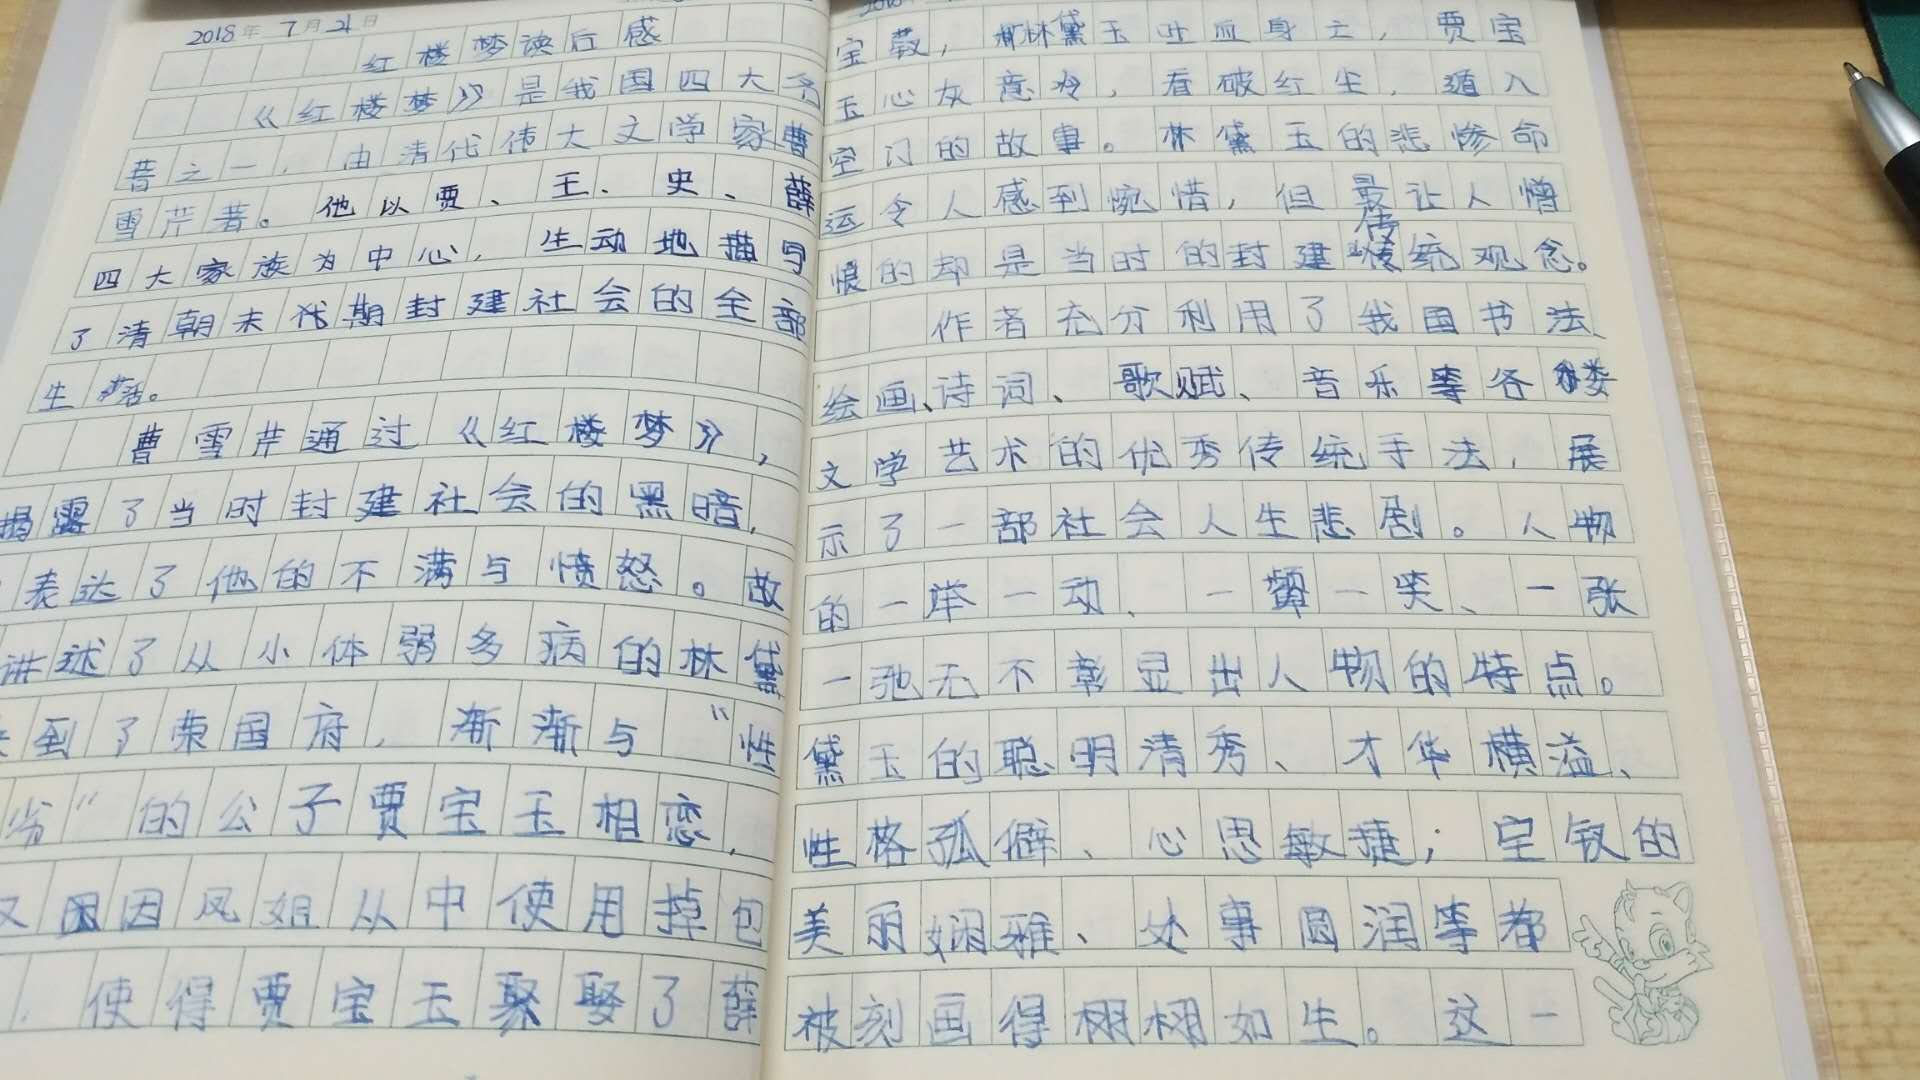 2018年 7月21日
红楼梦读后感
《红楼梦》是我国四大名
著之一,由清代伟大文学家曹
雪芹著。他以贾、王、史、薛
四大家族为中心,生动地描写
了清朝末代期封建社会的全部
生活。
曹雪芹通过《红楼梦》,
揭露了当时封建社会的黑暗,
表达了他的不满与愤怒。故
讲述了从小体弱多病的林黛
到了荣国府,渐渐与“性
劣”的公子贾宝玉相恋,
又因凤姐从中使用掉包
,使得贾宝玉娶了薛
宝钗,林黛玉吐血身亡,贾宝
玉心灰意冷,看破红尘,遁入
空门的故事。林黛玉的悲惨命
运令人感到惋惜,但最让人憎
恨的却是当时的封建传统观念。
作者充分利用了我国书法、
绘画、诗词、歌赋、音乐等各
文学艺术的优秀传统手法,展
示了一部社会人生悲剧。人物
的一举一动、一颦一笑、一张
一弛无不彰显出人物的特点。
黛玉的聪明清秀、才华横溢、
性格孤僻、心思敏捷;宝钗的
美丽娴雅、处事圆润等都
被刻画得栩栩如生。这一